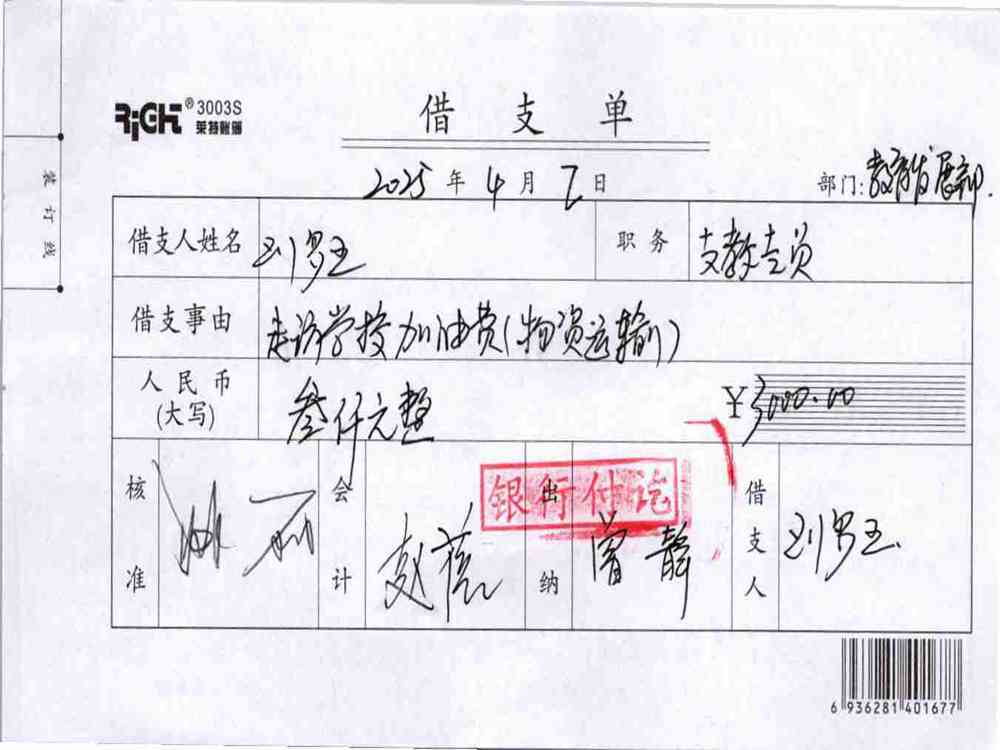 RiGHT® 3003S
莱特账册
借支单
2025年4月7日
部门:教育发展部.
装订线
借支人姓名 刘罗王 职务 支教专员
借支事由 走访学校加油费(物资运输)
人民币(大写) 叁仟元整 ¥3000.00
银行付讫
核准 会计 赵蓓 出纳 曾静 借支人 刘罗王.
6 936281 401677